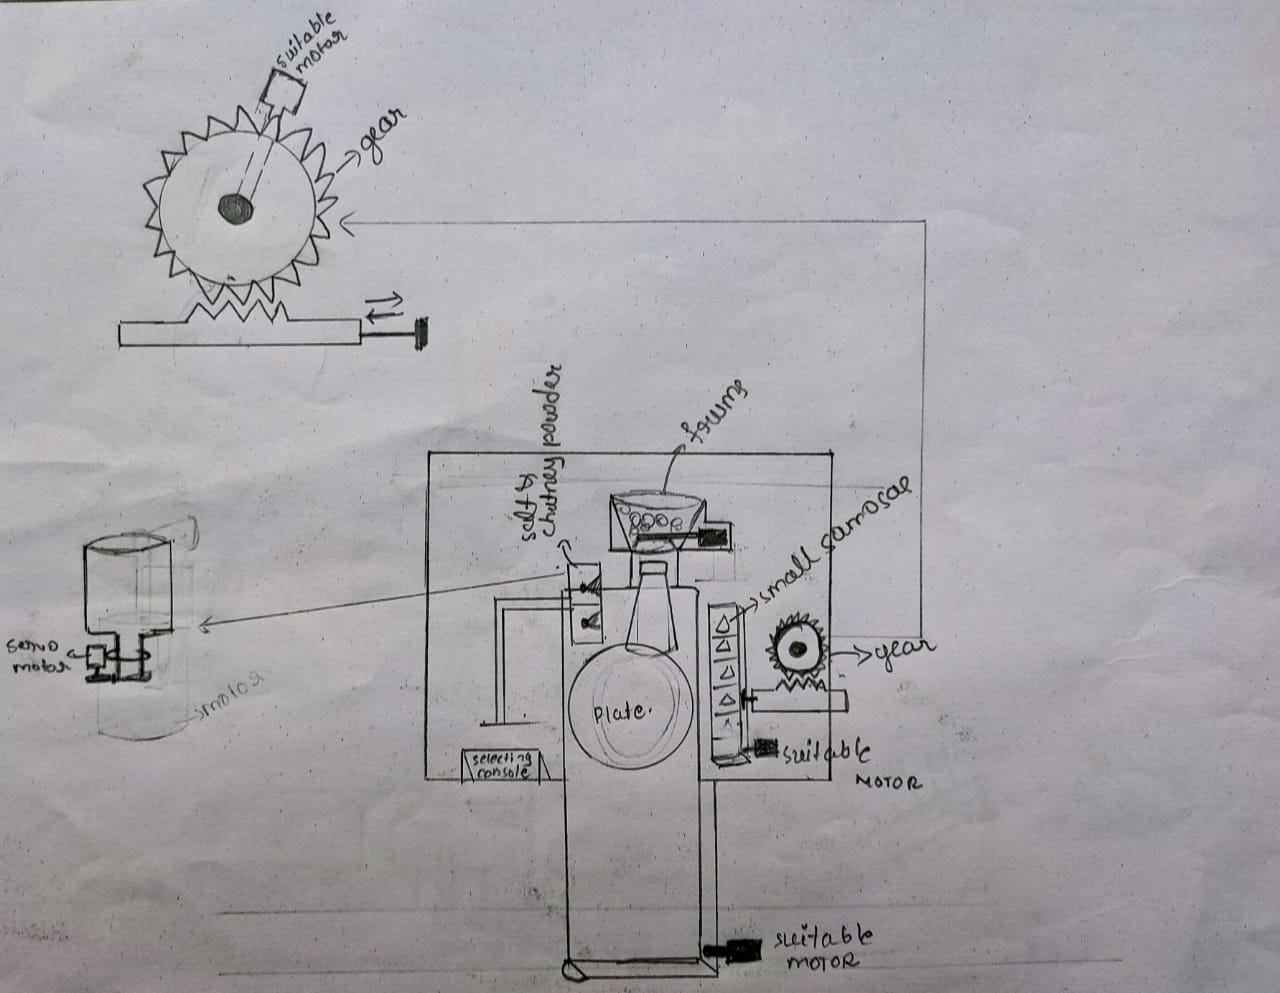 suitable
motor
gear
salt &
chutney powder
small samosae
servo
motor
motor
gear
Plate.
selecting
console
suitable
MOTOR
suitable
MOTOR